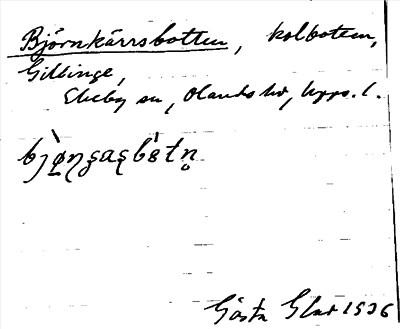 Björnkärrsbotten, kolbotten,
Gillinge,
Ekeby sn, Olands hd, Upps. l.
Gösta Glas 1936